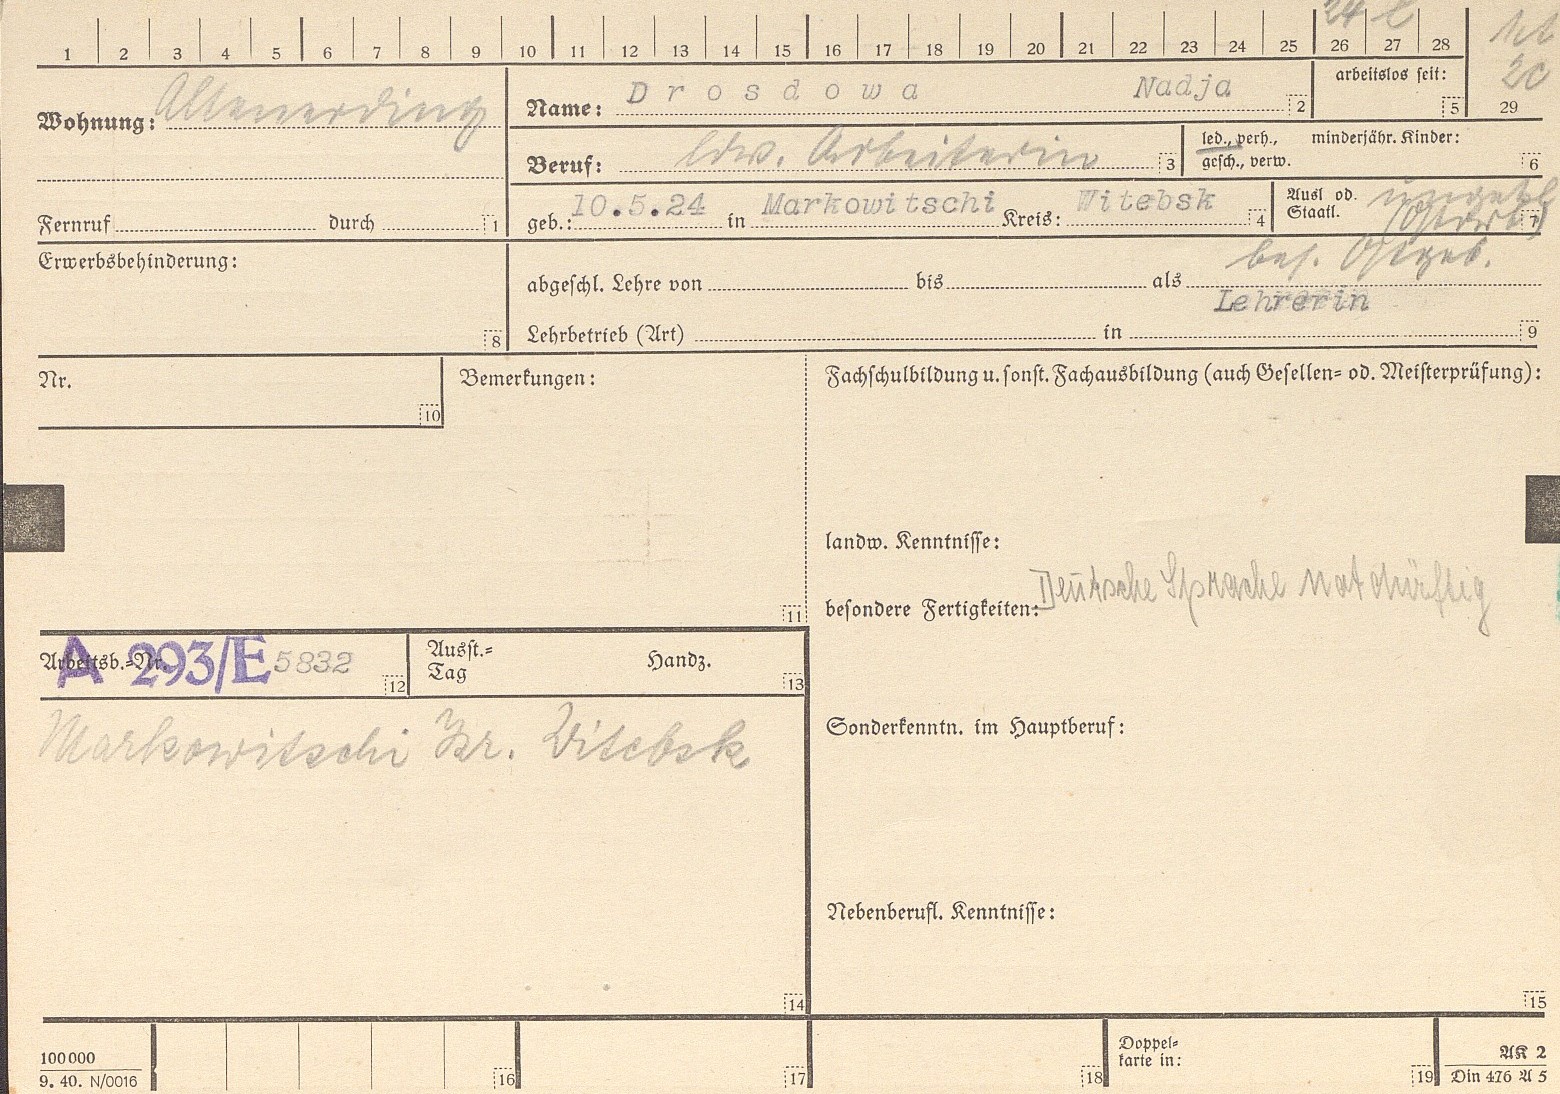 24 l
1 2 3 4 5 6 7 8 9 10 11 12 13 14 15 16 17 18 19 20 21 22 23 24 25 26 27 28
29
Wohnung: Altenerding
Name: Drosdowa Nadja 2
arbeitslos seit: 5
Beruf: ldw. Arbeiterin 3
led., verh., gesch., verw.
minderjähr. Kinder: 6
Fernruf durch 1
geb.: 10.5.24 in Markowitschi Kreis: Witebsk 4
Ausl od. Staatl. 7
Erwerbsbehinderung: 8
bes. Ostgeb.
abgeschl. Lehre von bis als
Lehrerin
Lehrbetrieb (Art) in 9
Nr. 10
Bemerkungen: 11
Fachschulbildung u. sonst. Fachausbildung (auch Gesellen= od. Meisterprüfung):
landw. Kenntnisse:
besondere Fertigkeiten: Deutsche Sprache notdürftig
Arbeitsb.=Nr. A 293/E 5832 12
Ausst.=
Tag
Handz. 13
Markowitschi Kr. Witebsk
14
Sonderkenntn. im Hauptberuf:
Nebenberufl. Kenntnisse:
15
100000
9. 40. N/0016
16
17
18
Doppel=
karte in:
19
AK 2
Din 476 A 5